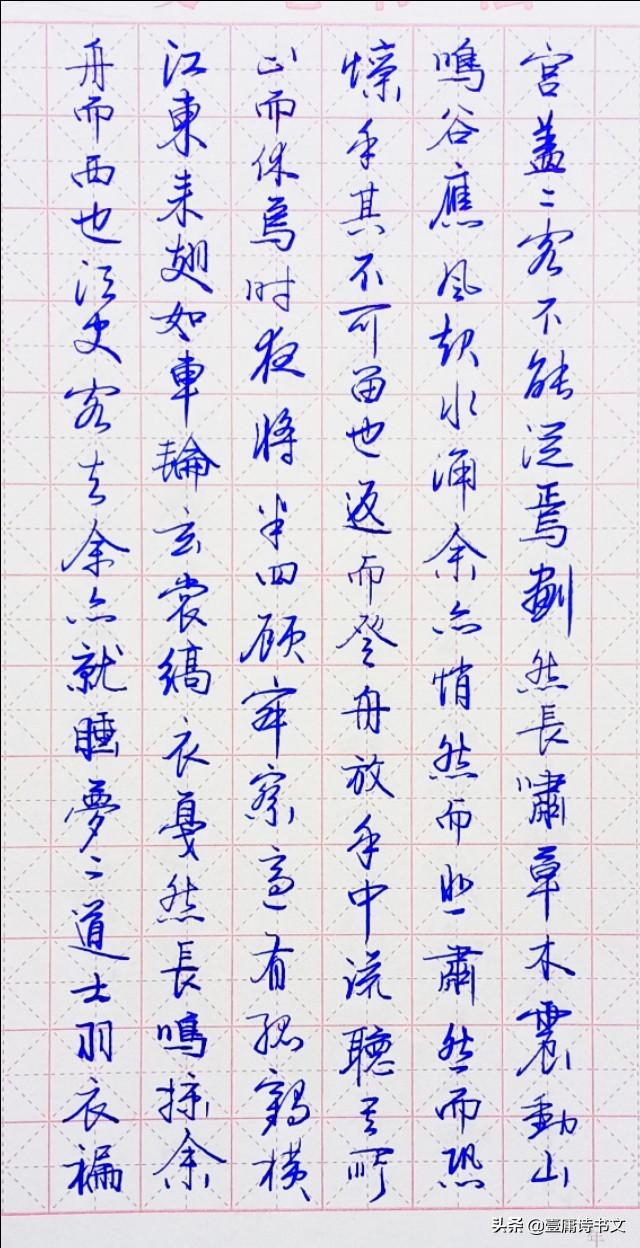 宫盖二客不能從焉劃然長嘯草木震動山
鳴谷應風起水涌余亦悄然而悲肅然而恐
懔乎其不可留也返而登舟放乎中流聽其所
止而休焉时夜將半四顾寂寥適有孤鶴横
江東来翅如車輪玄裳縞衣戛然長鳴掠余
舟而西也須臾客去余亦就睡夢二道士羽衣蹁
头条 @壹庸诗书文